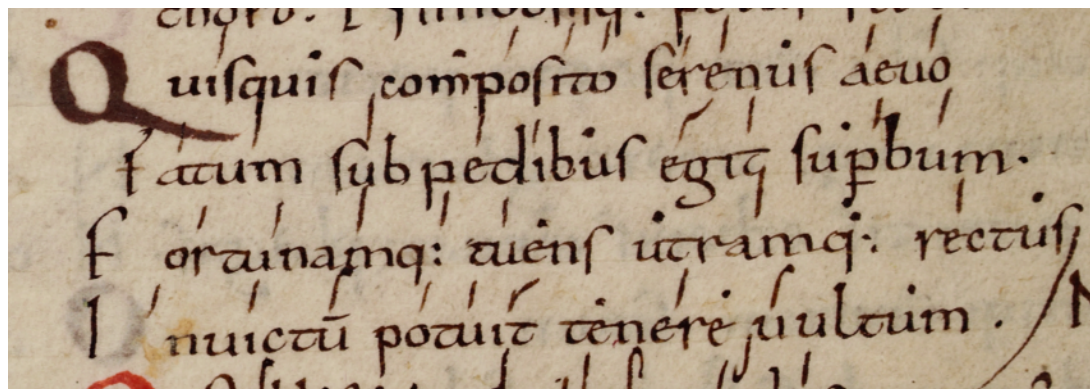 Quisquis cōposito serenus aeuo
fatum sub pedibus egitq; suꝑbum.
fortunamq: tuens utramq:. rectus
Inuictū potuit tenere uultum .